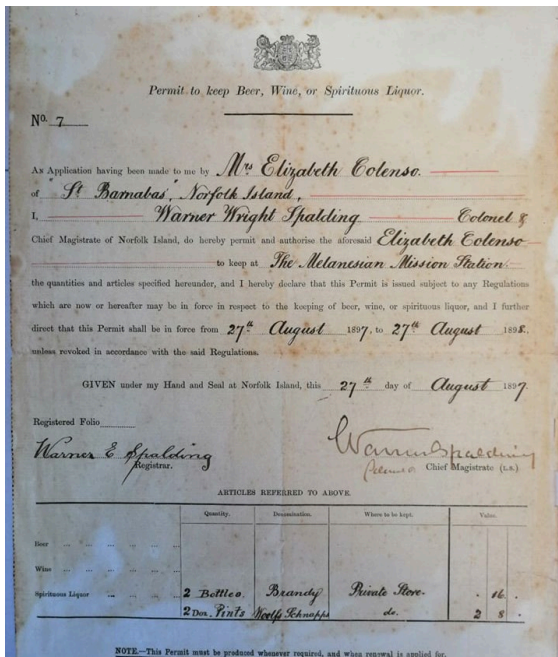 Permit to keep Beer, Wine, or Spirituous Liquor.
No. 7
An Application having been made to me by Mrs Elizabeth Colenso.
of "St Barnabas", Norfolk Island,
I, Warner Wright Spalding Colonel &
Chief Magistrate of Norfolk Island, do hereby permit and authorise the aforesaid Elizabeth Colenso
to keep at The Melanesian Mission Station.
the quantities and articles specified hereunder, and I hereby declare that this Permit is issued subject to any Regulations
which are now or hereafter may be in force in respect to the keeping of beer, wine, or spirituous liquor, and I further
direct that this Permit shall be in force from 27th August 1897, to 27th August 1898,
unless revoked in accordance with the said Regulations.
GIVEN under my Hand and Seal at Norfolk Island, this 27th day of August 1897.
Registered Folio
Warner E Spalding
Registrar.
Warner Spalding
Colonel & Chief Magistrate (L.S.)
ARTICLES REFERRED TO ABOVE.
Quantity. Denomination. Where to be kept. Value.
Beer ... ... ... ... ...
Wine ... ... ... ... ...
Spirituous Liquor ... ... ... 2 Bottles Brandy Private Store. . 16 .
2 Doz. Pints Woolfs Schnapps do. 2 8 .
NOTE.—This Permit must be produced whenever required, and when renewal is applied for.